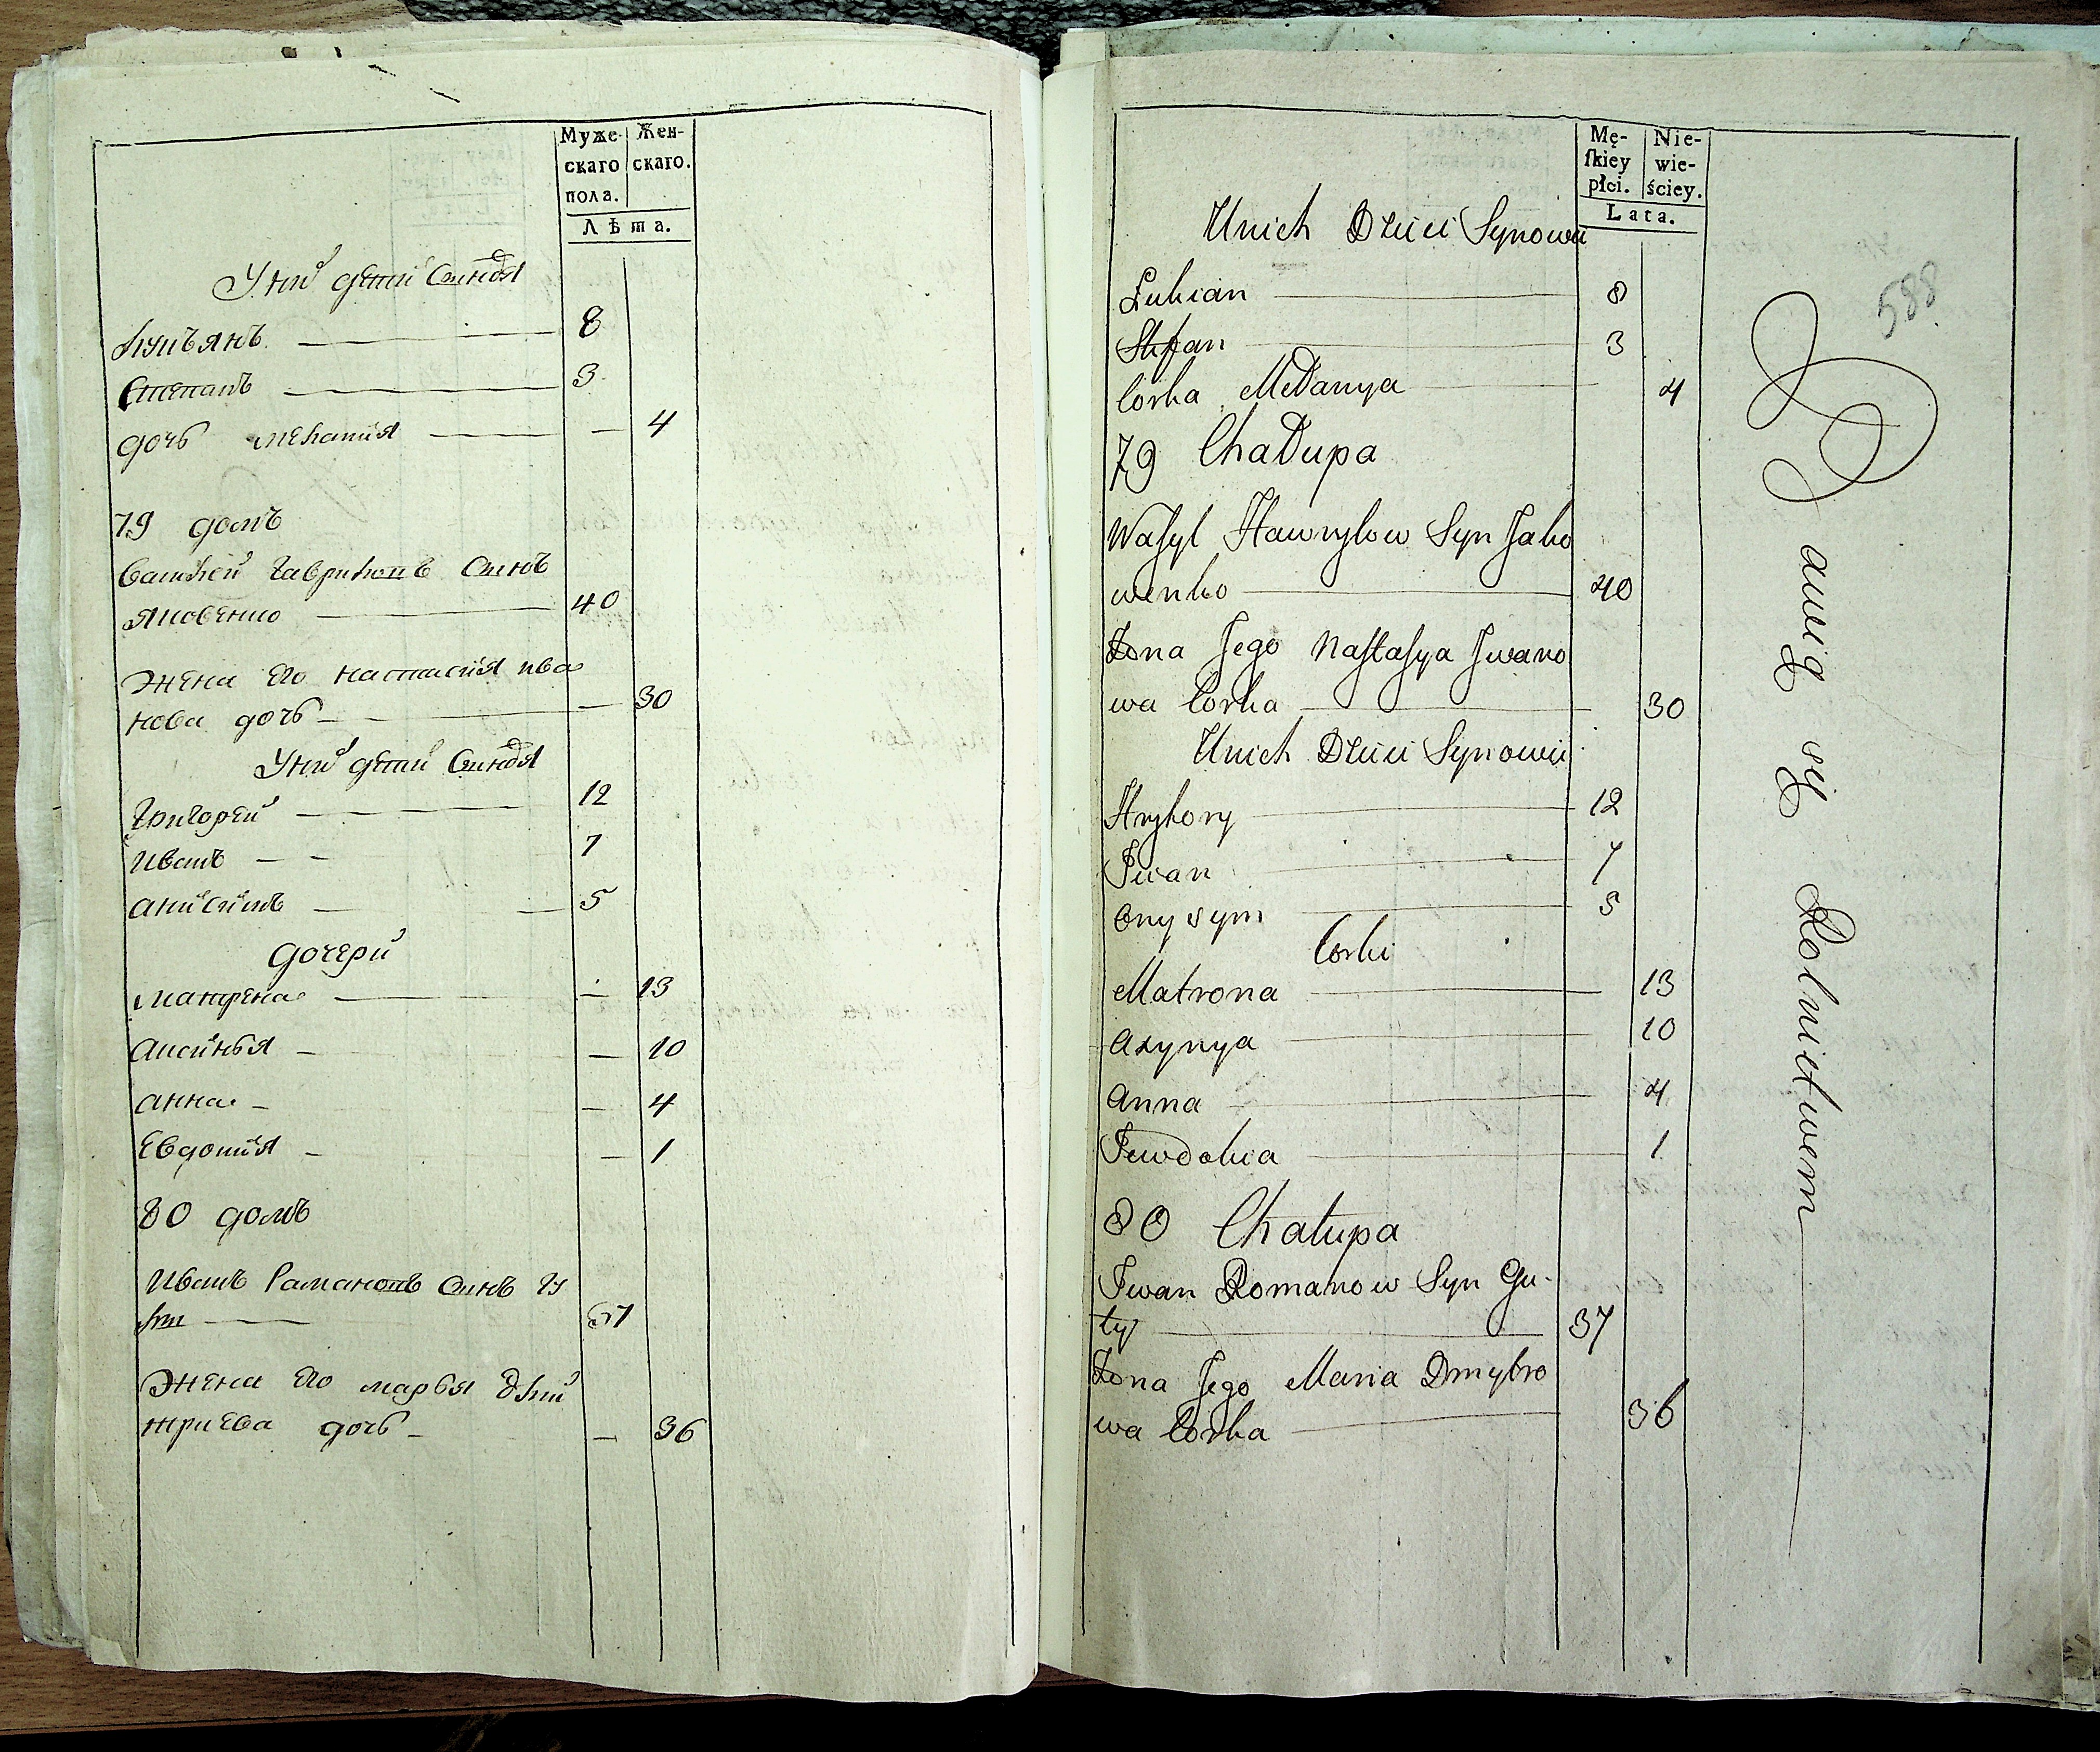 Муже- Жен-
скаго скаго.
пола.
Лѣта.
У них дети Синовя
Лукъянъ 8
Степанъ 3
дочь Мелания — 4
79 домъ
Василей Гавриловъ Синъ
Яковенко 40
Жена Его Настасия Ива
нова дочь — 30
У них дети Синовя
Григорей 12
Иванъ 7
Анисимъ 5
Дочери
Матрена — 13
Аксинья — 10
Анна — 4
Евдокия — 1
80 домъ
Иванъ Рамановъ Синъ Гу
37
Жена Его Марья Дми
триева дочь — 36
Mę- Nie-
ſkiey wie-
płci. ściey.
Lata.
588
Unich Dzieci Synowie
Łukian 8
Stefan 3
Corka Mełanya 4
79 Chałupa
Waſyl Hawryłow Syn Jako
wenko 40
Żona Jego Naſtaſya Jwano
wa Corka 30
Unich Dzieci Synowie
Hryhory 12
Jwan 7
Onysym 5
Corki
Matrona 13
Axynya 10
Anna 4
Jewdokia 1
80 Chałupa
Jwan Romanow Syn Gu-
ty 37
Żona Jego Maria Dmytro
wa Corka 36
Bawią się Rolnictwem